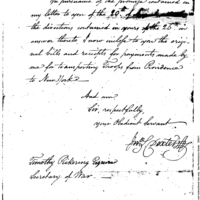 In pursuance of the promise contained in
my letter to you of the 20th
the directions contained in yours of the 25th in
answer thereto I now inclose to you the orig-
inal bills and receipts for payments made by
me for transporting Troops from Providence
to New York.
And am
Sir, respectfully,
your Obedient Servant
Timothy Pickering Esquire
Secretary of War